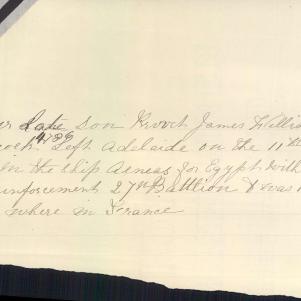 Late son James Willi
4736 left Adelaide on the 11th
in the ship Aeneas for Egypt with
inforcement 27th Battlion & was
where in France